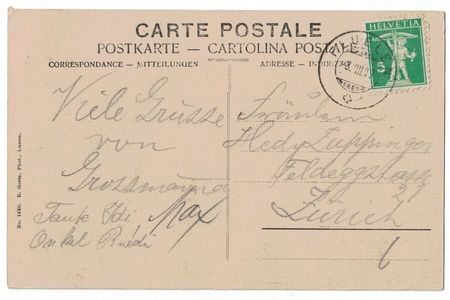 CARTE POSTALE
POSTKARTE — CARTOLINA POST
CORRESPONDANCE - MITTEILUNGEN
ADRESSE - INDIRIZZ
HELVETIA
5
Viele Grüsse
von
Grossmama
Tante Idi Max
Onkel Ruedi
Fräulein
Hedy Luppinger
Feldeggstrasse
Zürich
No. 1489. E. Goetz, Phot., Luzern.